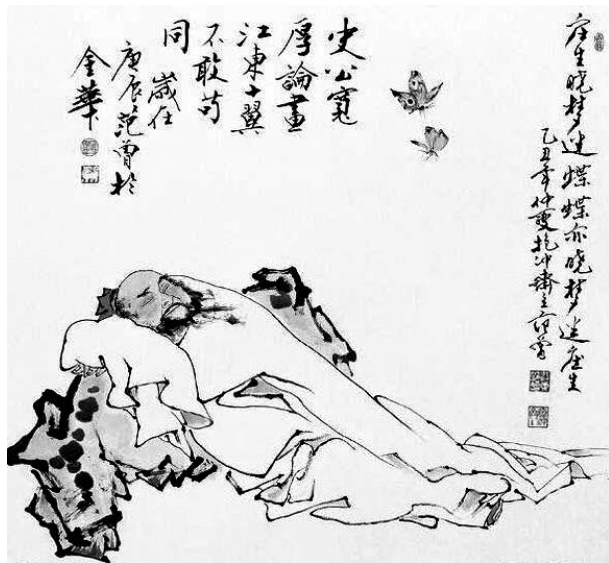 庄生晓梦迷蝶蝶亦晓梦迷庄生
乙丑年仲夏抱冲斋主范曾
史公寬
厚論畫
江東十翼
不敢苟
同 歲在
庚辰范曾於
金華